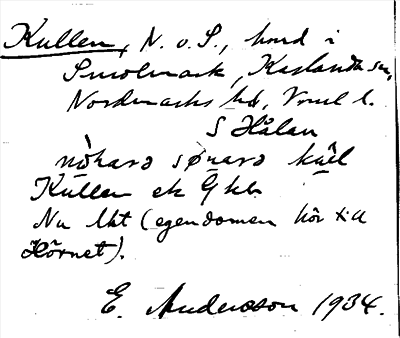 Kullen, N. o. S., hmd i
Smolmark, Karlanda sn,
Nordmarks hd, Vrml l.
S Hålan
kùl̄
Kullen ek
Nu lht (egendomen hör till
Hörnet).
E. Andersson 1934.